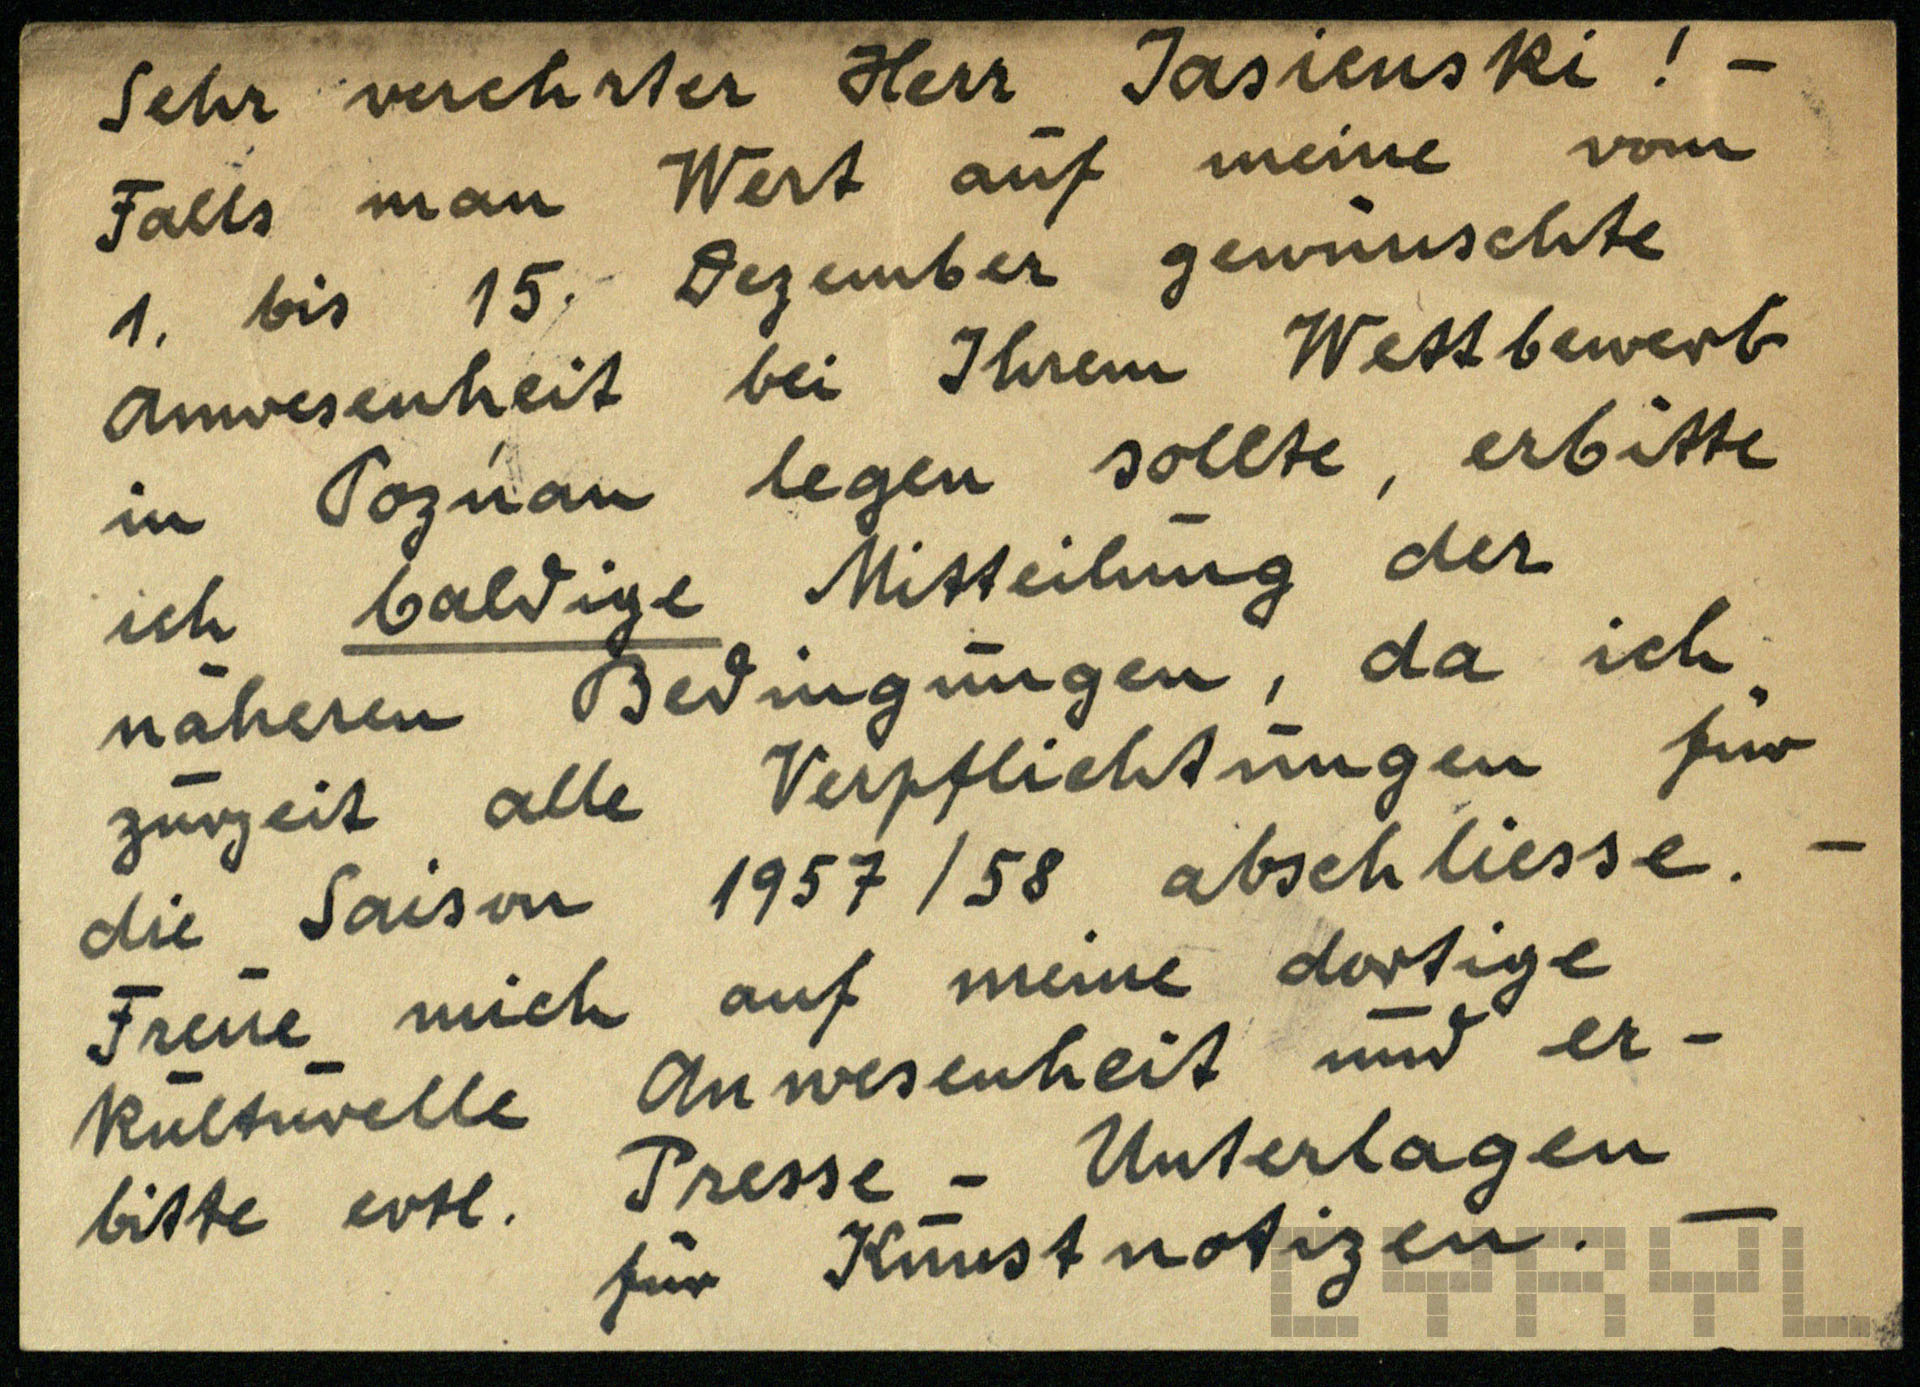 Sehr verehrter Herr Jasienski ! –
Falls man Wert auf meine vom
1. bis 15. Dezember gewünschte
Anwesenheit bei Ihrem Wettbewerb
in Pozńan legen sollte, erbitte
ich baldige Mitteilung der
näheren Bedingungen, da ich
zurzeit alle Verpflichtungen für
die Saison 1957/58 abschliesse. –
Freue mich auf meine dortige
kulturelle Anwesenheit und er-
bitte evtl. Presse - Unterlagen
für Kunstnotizen. –
CYRYL